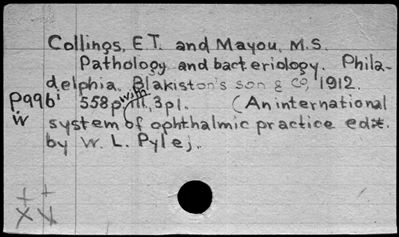 Collings, E.T. and Mayou, M.S.
Pathology and bacteriology. Phila-
delphia. Blakiston's son & Co, 1912.
P996¹ 558p with ill, 3pl. (An international
W system of ophthalmic practice ed.
by W. L. Pyle).